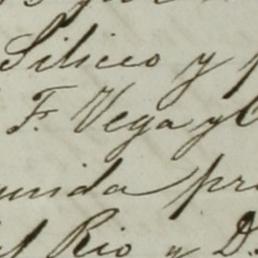 Siliceo y
F. Vega y
unda pr
el Rio y D.